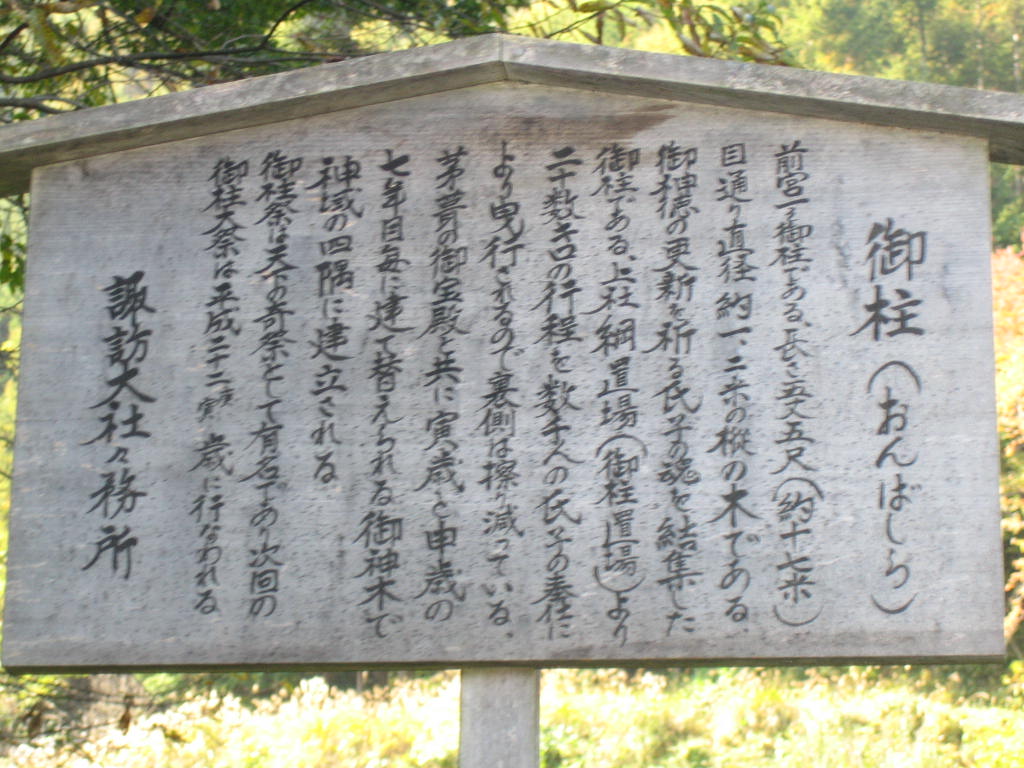 御柱（おんばしら）
前宮一之御柱である、長さ五丈五尺（約十七米）
目通り直径約一、二米の樅の木である、
御神徳の更新を祈る氏子の魂を結集した
御柱である、上社綱置場（御柱置場）より
二十数キロの行程を数千人の氏子の奉仕に
より曳行されるので裏側は擦り減っている、
茅葺の御宝殿と共に寅歳と申歳の
七年目毎に建て替えられる御神木で
神域の四隅に建立される
御柱祭は天下の奇祭として有名であり次回の
御柱大祭は平成二十二庚寅歳に行なわれる
諏訪大社々務所